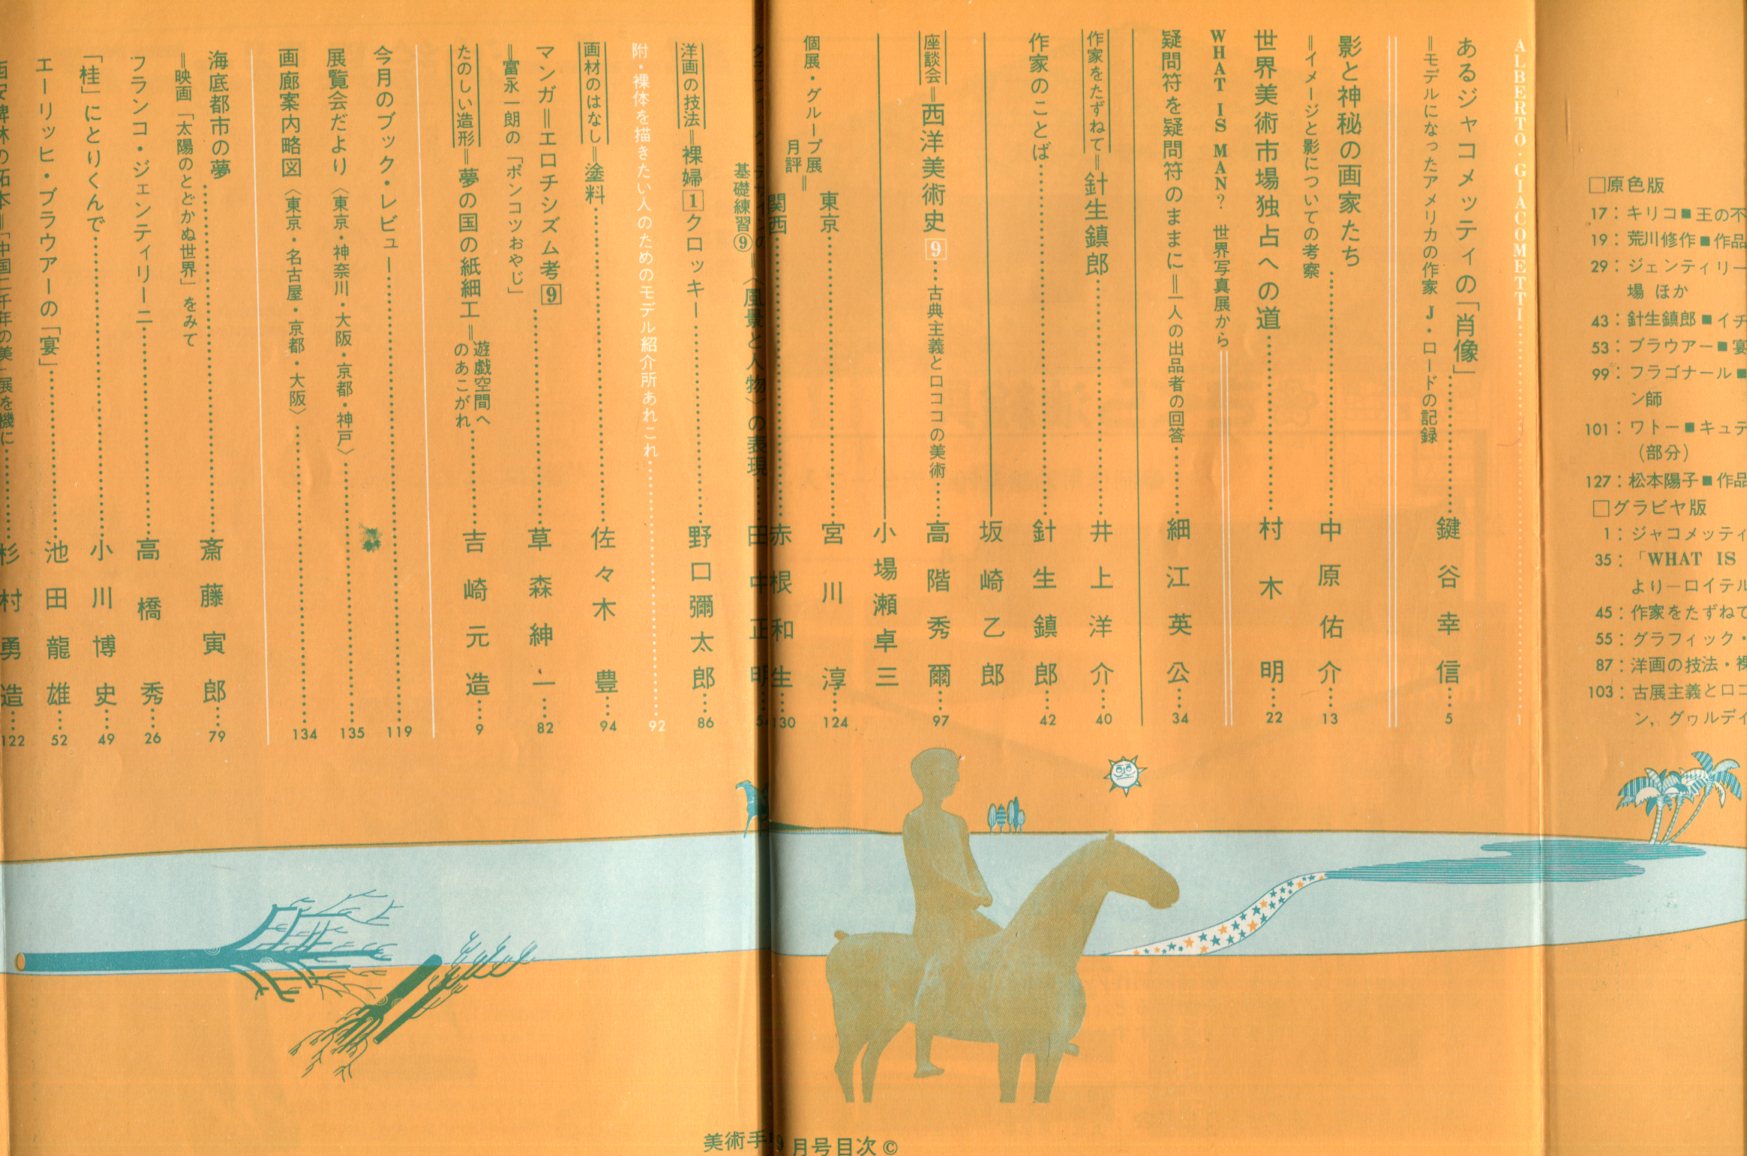 □原色版
17：キリコ■王の不
19：荒川修作■作品
29：ジェンティリー
場 ほか
43：針生鎮郎■イチ
53：ブラウアー■宴
99：フラゴナール■
ン師
101：ワトー■キュテ
（部分）
127：松本陽子■作品
□グラビヤ版
1：ジャコメッティ
35：「WHAT IS
より—ロイテル
45：作家をたずねて
55：グラフィック・
87：洋画の技法・裸
103：古展主義とロコ
ン，グヮルディ
ALBERTO・GIACOMETTI……1
あるジャコメッティの「肖像」……鍵谷幸信……5
＝モデルになったアメリカの作家 J・ロードの記録
影と神秘の画家たち……中原佑介……13
＝イメージと影についての考察
世界美術市場独占への道……村木明……22
WHAT IS MAN？ 世界写真展から
疑問符を疑問符のままに＝一人の出品者の回答……細江英公……34
作家をたずねて＝針生鎮郎……井上洋介……40
作家のことば……針生鎮郎……42
坂崎乙郎
座談会＝西洋美術史 9……古典主義とロココの美術……高階秀爾……97
小場瀬卓三
個展・グループ展
月評＝
東京……宮川淳……124
関西……赤根和生……130
基礎練習⑨＝〈風景と人物〉の表現……田中正明……54
洋画の技法＝裸婦 1 クロッキー……野口彌太郎……86
附・裸体を描きたい人のためのモデル紹介所あれこれ……92
画材のはなし＝塗料……佐々木豊……94
マンガ＝エロチシズム考 9……草森紳一……82
＝富永一朗の「ポンコツおやじ」
たのしい造形＝夢の国の紙細工＝遊戯空間へのあこがれ……吉崎元造……9
今月のブック・レビュー……119
展覧会だより〈東京・神奈川・大阪・京都・神戸〉……135
画廊案内略図〈東京・名古屋・京都・大阪〉……134
海底都市の夢……斎藤寅郎……79
＝映画「太陽のとどかぬ世界」をみて
フランコ・ジェンティリーニ……高橋秀……26
「桂」にとりくんで……小川博史……49
エーリッヒ・ブラウアーの「宴」……池田龍雄……52
西安碑林の拓本＝「中国二千年の美」展を機に……杉村勇造……122
美術手 9 月号目次 ©